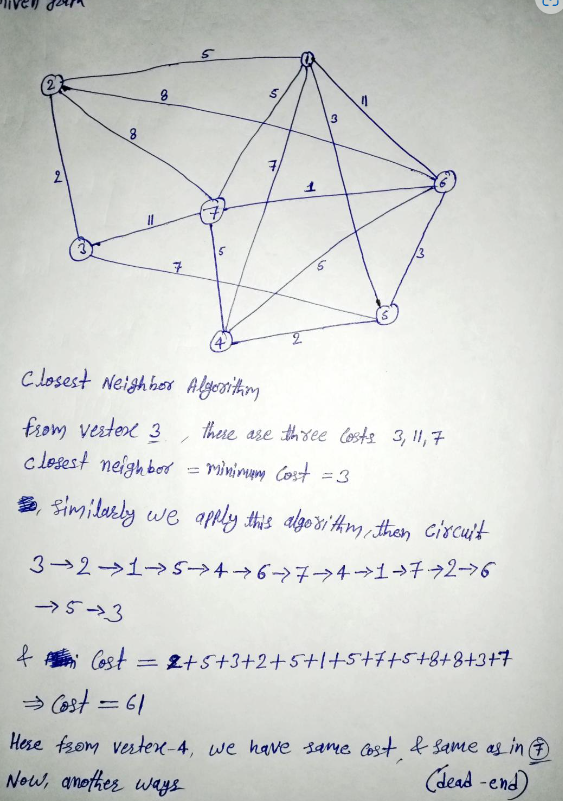 Given graph
5
1
2
8
5
11
3
8
7
1
6
2
7
11
3
5
5
3
7
5
4
2
Closest Neighbor Algorithm
from vertex 3, there are three costs 3, 11, 7
closest neighbor = minimum cost = 3
, similarly we apply this algorithm, then circuit
3→2→1→5→4→6→7→4→1→7→2→6
→5→3
& Cost = 2+5+3+2+5+1+5+7+5+8+8+3+7
⇒ Cost = 61
Here from vertex-4, we have same cost, & same as in 7
Now, another ways (dead-end)